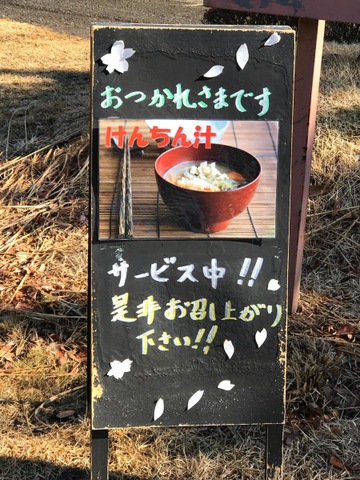 おつかれさまです
けんちん汁
サービス中!!
是非お召し上がり
下さい!!